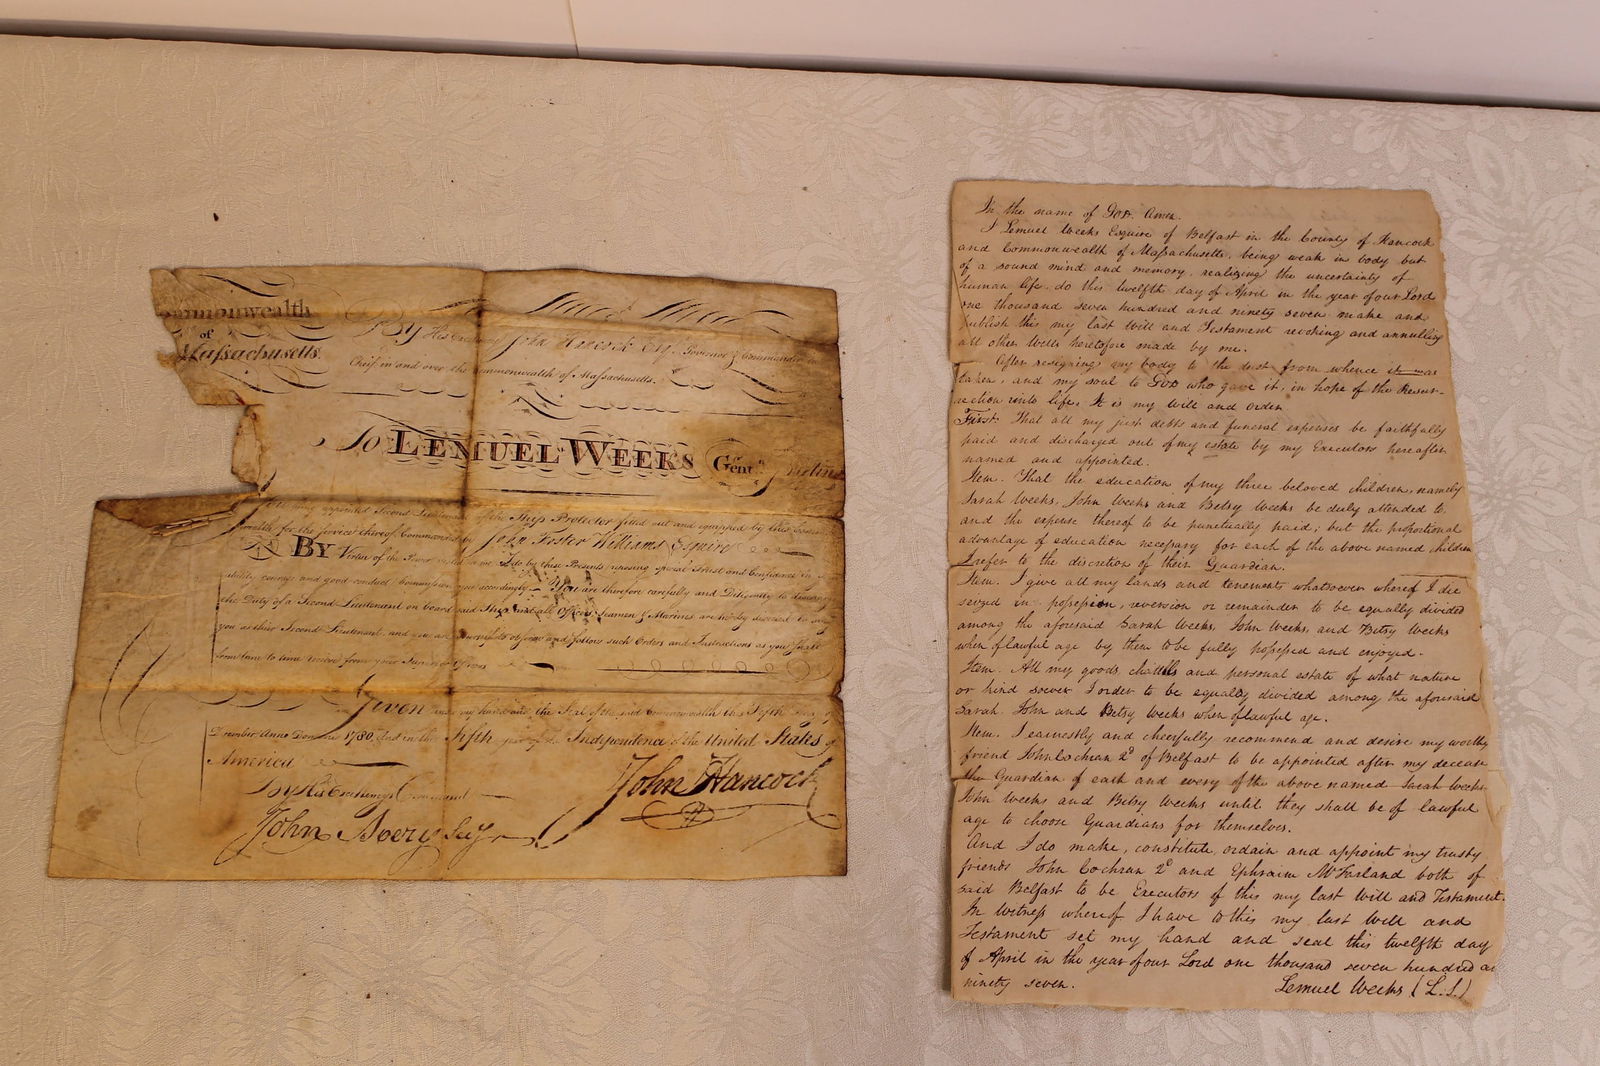 Commonwealth
of
Massachusetts.
By His Excellency John Hancock Esq. Governor & Commander in
Chief in and over the Commonwealth of Massachusetts.
To LEMUEL WEEKS Gent.
appointed Second Lieutenant of the Ship Protector fitted out and equipped by this
wealth for the service thereof Commanded by John Foster Williams Esquire
BY Virtue of the Power vested in me I do by these Presents reposing special Trust and Confidence in
ability courage and good conduct Commission you accordingly You are therefore carefully and Diligently to discharge
the Duty of a Second Lieutenant on board said Ship and all Officers Seamen & Marines are hereby directed to
you as their Second Lieutenant, and you are to observe and follow such Orders and Instructions as you shall
from time to time receive from your Superior Officers
Given under my hand and the Seal of the said Commonwealth this Fifth day of
December Anno Domini 1780. And in the Fifth year of the Independence of the United States of
America
By His Excellency's Command
John Hancock
John Avery Secy
In the name of God. Amen.
I Lemuel Weeks Esquire of Belfast in the County of Hancock
and Commonwealth of Massachusetts, being weak in body but
of a sound mind and memory, realizing the uncertainty of
human life, do this twelfth day of April in the year of our Lord
one thousand seven hundred and ninety seven make and
publish this my last Will and Testament revoking and annulling
all other Wills heretofore made by me.
After resigning my body to the dust from whence it was
taken, and my soul to God who gave it, in hope of the Resur-
rection unto life, It is my will and order
First. That all my just debts and funeral expenses be faithfully
paid and discharged out of my estate by my Executors hereafter
named and appointed.
Item. That the education of my three beloved children, namely
Sarah Weeks, John Weeks and Betsy Weeks be duly attended to
and the expense thereof to be punctually paid; but the proportional
advantage of education necessary for each of the above named children
I refer to the discretion of their Guardian.
Item. I give all my lands and tenements whatsoever whereof I die
seized in possession, reversion or remainder to be equally divided
among the aforesaid Sarah Weeks, John Weeks, and Betsy Weeks
when of lawful age by them to be fully possessed and enjoyed.
Item. All my goods chattels and personal estate of what nature
or kind soever I order to be equally divided among the aforesaid
Sarah. John and Betsy Weeks when of lawful age.
Item. I earnestly and cheerfully recommend and desire my worthy
friend John Cochran 2d of Belfast to be appointed after my decease
the Guardian of each and every of the above named Sarah Weeks
John Weeks and Betsy Weeks until they shall be of lawful
age to choose Guardians for themselves.
And I do make, constitute, ordain and appoint my trusty
friends John Cochran 2d and Ephraim McFarland both of
said Belfast to be Executors of this my last will and Testament.
In witness whereof I have to this my last Will and
Testament set my hand and seal this twelfth day
of April in the year of our Lord one thousand seven hundred an
ninety seven.
Lemuel Weeks (L.S.)